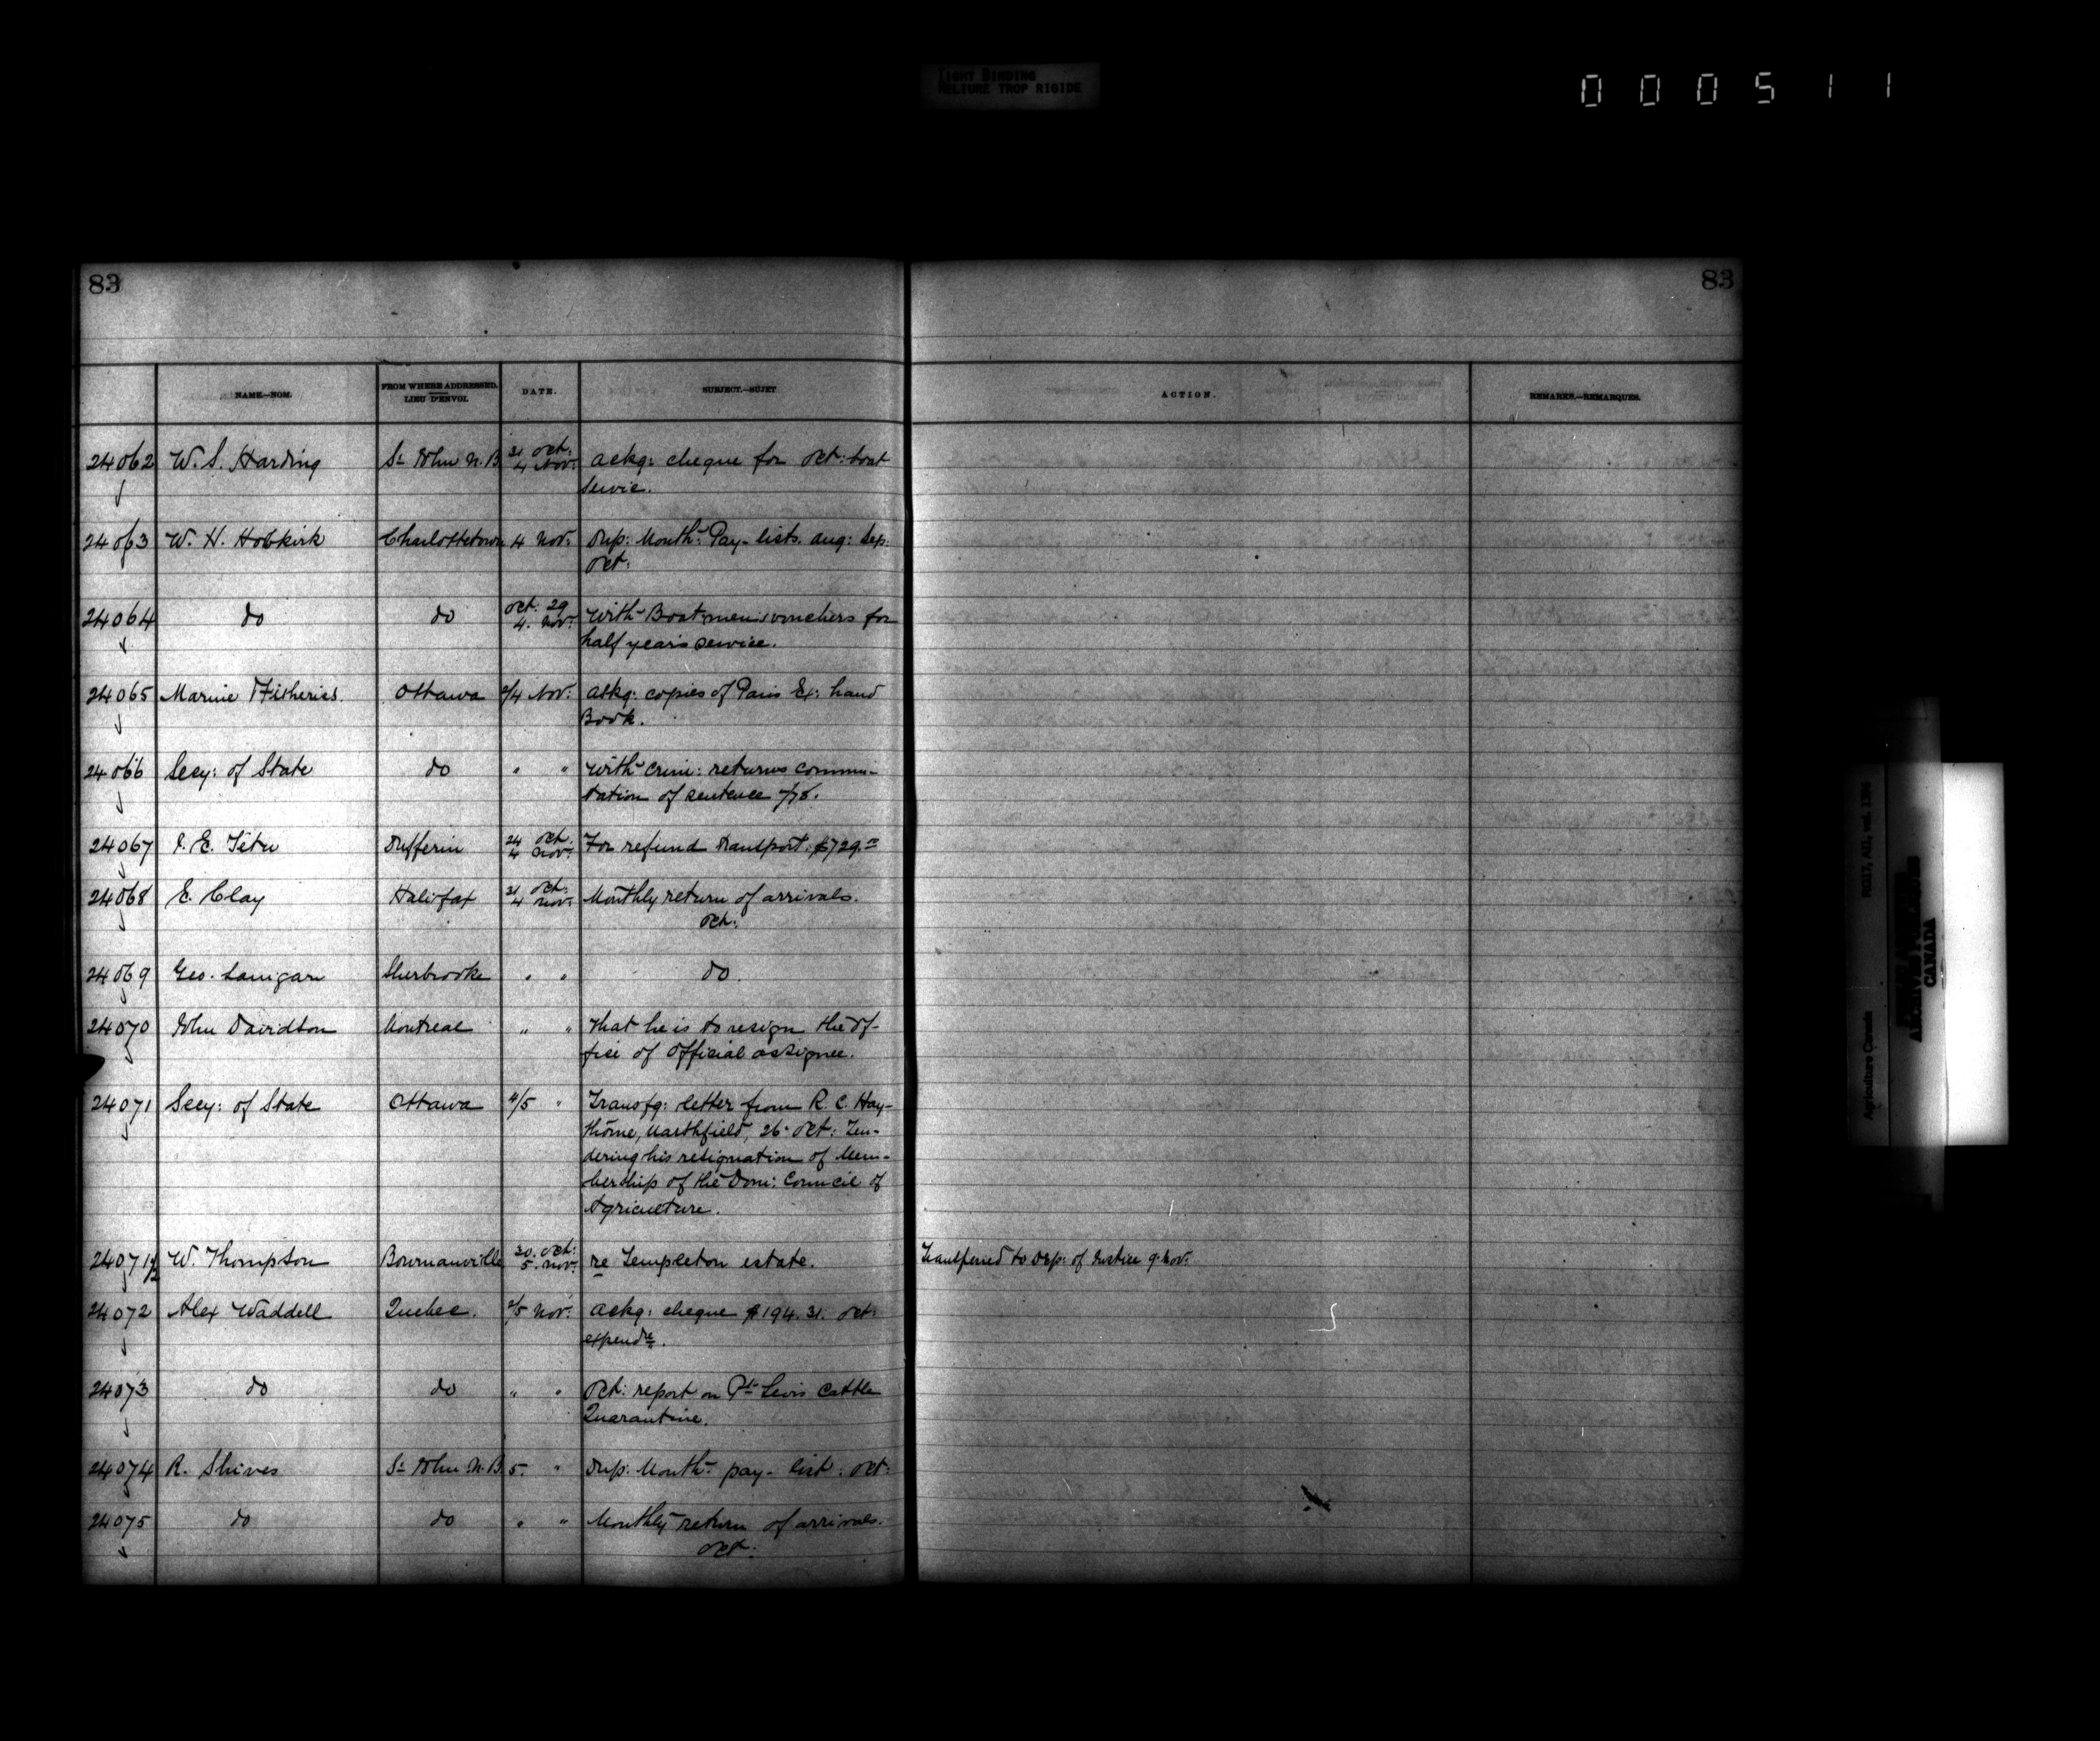 TIGHT BINDING
RELIURE TROP RIGIDE
000511
83
83
NAME.—NOM.
FROM WHERE ADDRESSED.
LIEU D'ENVOI.
DATE.
SUBJECT.—SUJET
ACTION.
REMARKS.—REMARQUES.
24062 W. S. Harding St John N.B. 31 Oct: 4 Nov: Ackg: cheque for Oct: boat
Servic.
24063 W. H. Hobkirk Charlottetown 4 Nov: Dup: Month: Pay-lists. Aug: Sep:
Oct:
24064 do do Oct. 29 4. Nov: With Boatmen's vouchers for
half year's service.
24065 Marine Fisheries. Ottawa 2/4 Nov: Ackg: copies of Paris Ex: hand
Book.
24066 Secy: of State do " " With crim: returns commu-
tation of sentence 7/78.
24067 J. E. Têtu Dufferin 24 Oct: 4 Nov: For refund transport: $729.
24068 E. Clay Halifax 31 Oct: 4 Nov: Monthly return of arrivals.
Oct:
24069 Geo. Lanigan Sherbrooke " " do.
24070 John Davidson Montreal " " That he is to resign the of-
fice of Official assignee.
24071 Secy: of State Ottawa 4/5 " Transfg: letter from R. C. Hay-
thorne, Marshfield, 26 Oct: Ten-
dering his resignation of Mem-
bership of the Dom: Council of
Agriculture.
24071½ W. Thompson Bowmanville 30. Oct: 5. Nov: re Templeton estate. Transferred to Dep: of Justice 9. Nov:
24072 Alex Waddell Quebec. 2/5 Nov: Ackg: cheque $194.31. Oct:
expendre.
24073 do do " " Oct: report on Pt Levis Cattle
Quarantine.
24074 R. Shives St John N.B. 5. " Dup: Month: pay-list: Oct:
24075 do do " " Monthly return of arrivals.
Oct:
RG17, AII, vol.
Agriculture Canada
CANADA